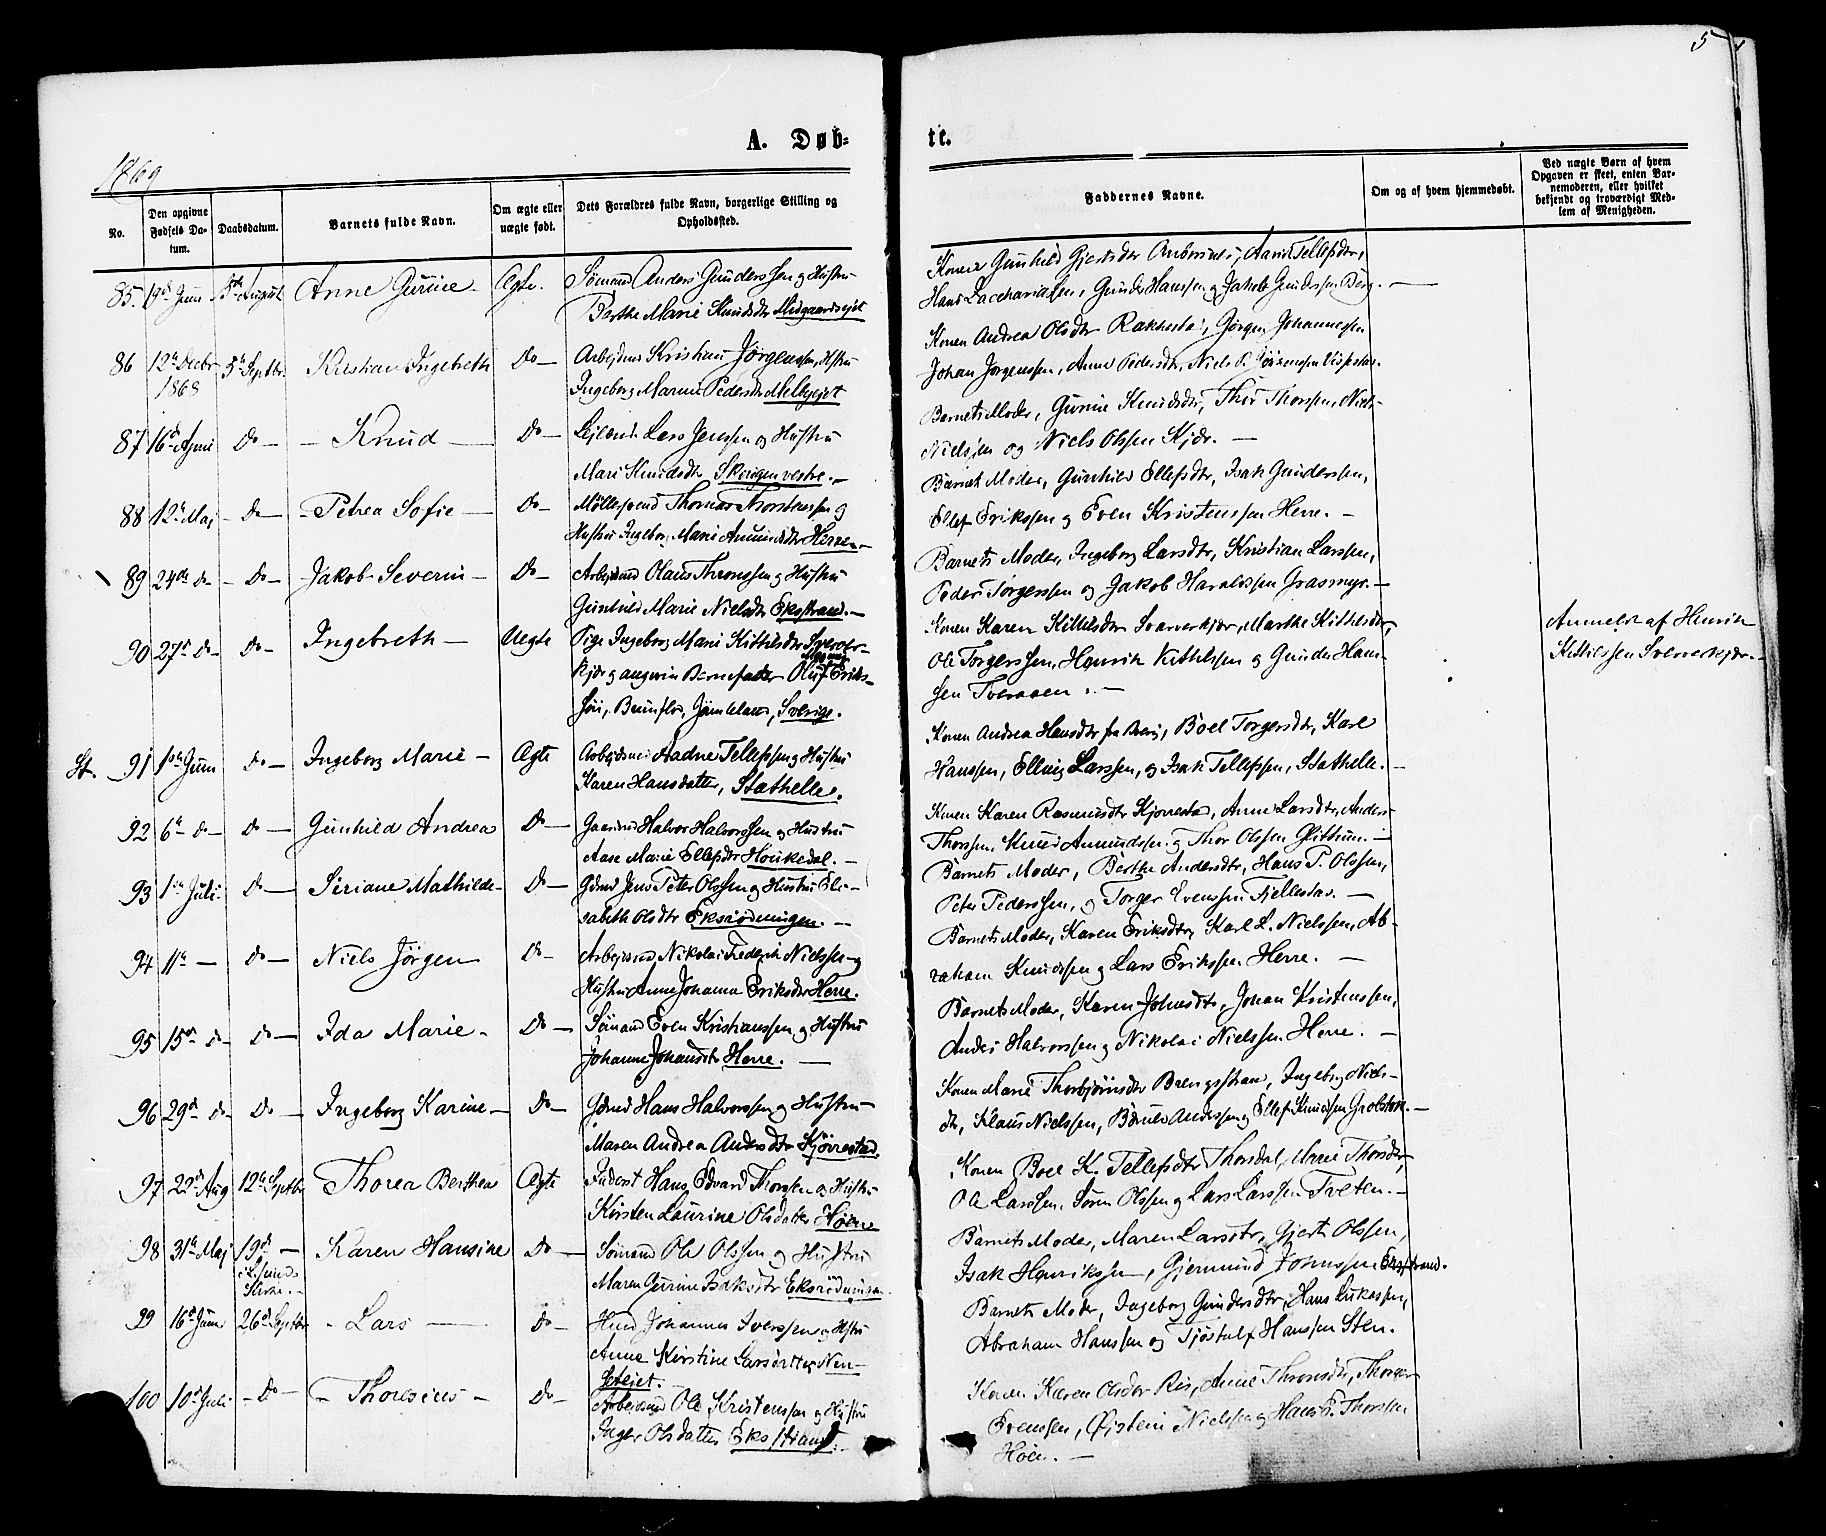 5
A. Døb-
te.
1869
No.
Den opgivne Fødsels Da-tum.
Daabsdatum.
Barnets fulde Navn.
Om ægte eller uægte født.
Dets Forældres fulde Navn, borgerlige Stilling og Opholdssted.
Faddernes Navne.
Om og af hvem hjemmedøbt.
Ved uægte Børn af hvem Opgaven er skeet, enten Bar-nemoderen, eller hvilket bekjendt og troværdigt Med-lem af Menigheden.
85. 19de Juni 5te August Anne Gurine Ægte. Sømand Anders Gundersen og Hustru
Berthe Marie Knudsdtr Midgaardsejet
Konen Gunhild Gjertsdtr, Aanid Tellefsdtr,
Hans Zacchariasen, Gunder Hanssen og Jakob Gundersen Berg. —
86 12te Decbr 1868 5te Septbr. Kristian Ingebreth Do — Arbejdsmd Kristian Jørgenssen, Hstru
Ingeborg Marie Pedersdtr Melbyejet
Konen Andrea Olsdtr Rakkestad, Jørgen Johannessen
Johan Jørgenssen, Anne Pedersdtr, Niels P.
87 16de April Do — — Knud — Do — Lejlænd. Lars Jenssen og Hustru
Mari Knudsdtr Skougen vestre. —
Barnets Moder, Gurine Knudsdtr, Thor Thorssen, Niels
Nielssen og Niels Olssen Kjær. —
88 12te Maj — Do — — Petrea Sofie — Do — Møllesvend Thomas Thorstenssen og
Hustru Ingeborg Marie Amundsdtr Herre. —
Barnets Moder, Gunhild Ellefsdtr, Isak Gunderssen,
Ellef Erikssen og Even Kristenssen Herre. —
89 24de Do — Do — Jakob Severin — Do — Arbejdsmd Olaus Thronssen og Hustru
Gunhild Marie Nielsdtr Ekstrand. —
Barnets Moder, Ingeborg Larsdtr, Kristian Larssen,
Peder Torgerssen og Jakob Haraldssen Grasmyr. —
90 27de Do — Do — Ingebreth — Uægte Pige Ingeborg Marie Kittilsdtr Sverver-
kjær og angiven Barnefader Oluf Eriks-
søn, Brunflo, Jämtland, Sverige.
Konen Karen Kittilsdtr Sververkjær, Marthe Kittilsdtr,
Ole Torgerssen, Henrik Kittilssen og Gunder Hans-
sen Tveraaen. —
Anmeldt af Henrik
Kittilssen Sververkjær. —
St. 91 1ste Juni Do — Ingeborg Marie — Ægte Arbejdsmd Aadne Tellefssen og Hustru
Karen Hansdatter, Stathelle.
Konen Andrea Hansdtr fra Berg, Boel Torgersdtr, Karl
Hanssen, Elling Larssen, og Isak Tellefssen, Stathelle. —
92 6te Do — Do — Gunhild Andrea Do — Gaardmd Halvor Halvorssen og Hustru
Aase Marie Ellefsdtr Houkedal. —
Konen Karen Rasmusdtr Kjørrestad, Anne Larsdtr, Anders
Thorssen, Knud Amundssen og Thor Olssen Glittrum. —
93 1ste Juli Do — Siriane Mathilde — Do — Gdmd Jens Peter Olssen og Hustru Eli-
sabeth Olsdtr Eksrødningen. —
Barnets Moder, Berthe Andersdtr, Hans P. Olssen,
Peter Pederssen, og Torger Evenssen Fjellestad. —
94 11te — Do — Niels Jörgen Do — Arbejdsmd Nikolai Frederik Nielssen og
Hustru Anne Johanna Eriksdtr Herre.
Barnets Moder, Karen Eriksdtr, Karl L. Nielssen, Ab-
raham Knudssen og Lars Erikssen Herre. —
95 15de Do — Do — Ida Marie — Do — Sømand Even Kristianssen og Hustru
Johanne Johansdtr Herre. —
Barnets Moder, Karen Johnsdtr, Johan Kristenssen,
Anders Halvorssen og Nikolai Nielssen Herre. —
96 29de Do Do — Ingeborg Karine — Do — Gdmd Hans Halvorssen og Hustru —
Maren Andrea Andersdtr Kjørrestad.
Konen Marie Thorbjørnsdtr Brengsstran, Ingeborg Niels-
dtr, Klaus Nielssen, Anderssen og Ellef Knudssen Grobstok. —
97 22de Aug 12te Septbr Thorea Berthea Ægte Inderst Hans Edvard Thorssen og Hustru
Kirsten Laurine Olsdatter Høen
Konen Boel K. Tellefsdtr Thorsdal, Anne Thorsdtr,
Ole Larssen, Søren Olssen og Lars Larssen Tveten. —
98 31te Maj 19de — i Kirke. — Karen Hansine Do — Sømand Ole Olssen og Hustru
Maren Gurine Isaksdtr Eksrødningen
Barnets Moder, Maren Larsdtr, Gjert Olssen,
Isak Henrikssen, Gjermund Johnssen Ekstrand.
99 16de Juni 26de Septbr — Lars — Do — Hmd Johannes Iverssen og Hstru
Anne Kirstine Larsdatter Nen-
setejet.
Barnets Moder, Ingeborg Gundersdtr, Hans Lukassen,
Abraham Hanssen og Tjøstulf Hanssen Sten.
100 10de Juli — Do — — Thoresius — Do — Arbejdsmd Ole Kristenssen og Hustru
Inger Olsdatter Ekstrand.
Konen Karen Olsdtr Ris, Anne Thronsdtr, Thorger
Evenssen, Øistein Nielssen og Hans E. Thorssen
Høen. —